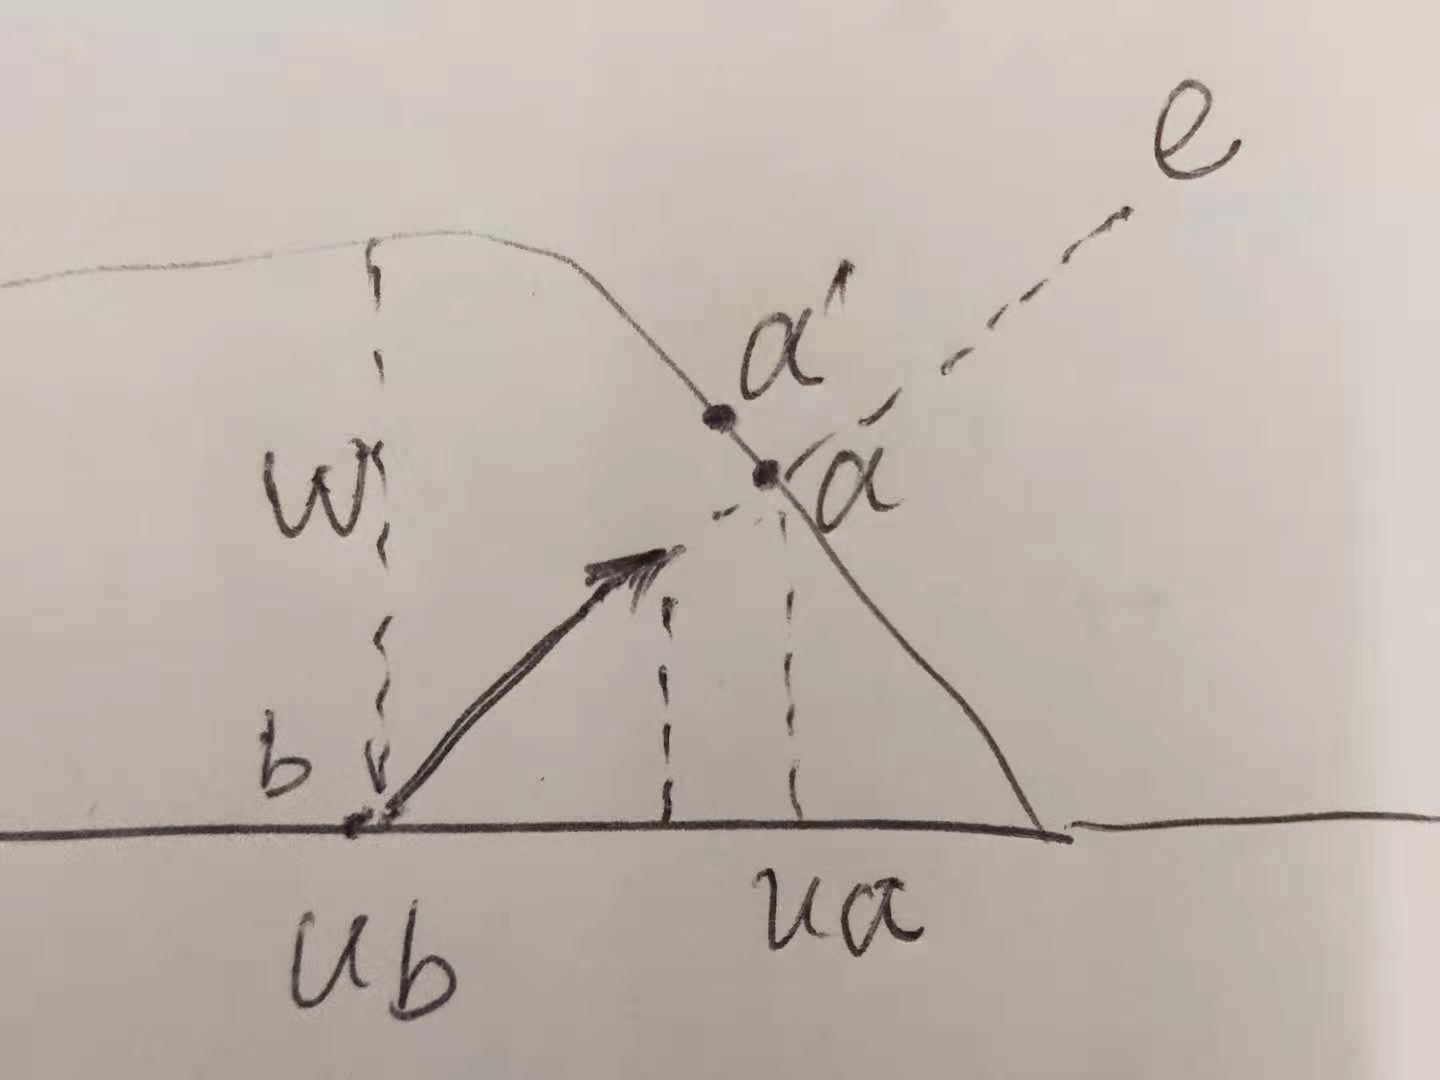 e
a'
a
W
b
ub
ua